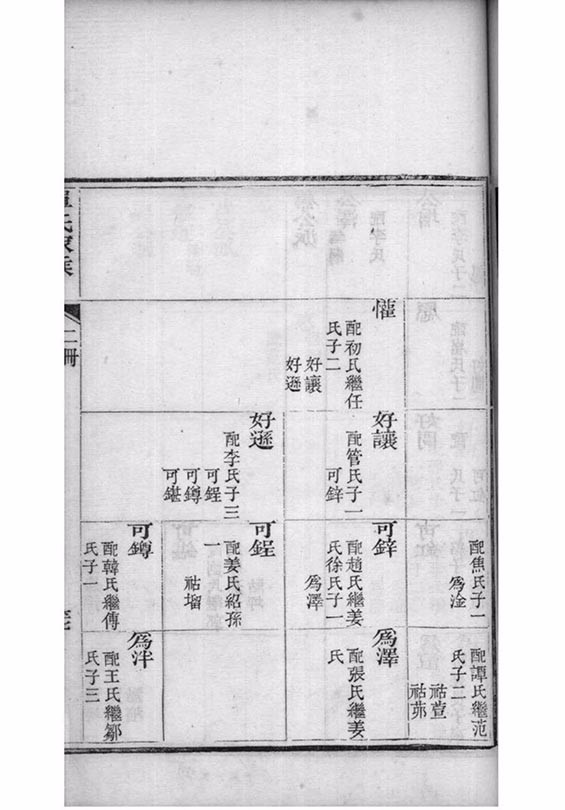 配焦氏子一
爲淦
配譚氏繼范
氏子二
祜萱
祜茆
懽
配初氏繼任
氏子二
好讓
好遜
好讓
配管氏子一
可鋅
可鋅
配趙氏繼姜
氏徐氏子一
爲澤
爲澤
配張氏繼姜
氏
好遜
配李氏子三
可鋥
可鐏
可鍖
可鋥
配姜氏紹孫
一
祜塯
可鐏
配韓氏繼傅
氏子一
爲泮
配王氏繼鄒
氏子三
二冊